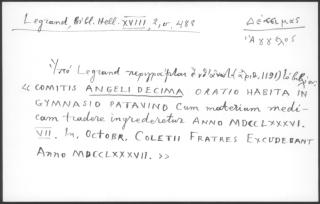 Legrand, Bibl. Hell. XVIII, 2, σ. 488
Δέκιμας
Ἄγγελος
Ὑπὸ Legrand περιγράφεται (ἀριθ. 1191)
« COMITIS ANGELI DECIMA ORATIO HABITA IN
GYMNASIO PATAVINO cum materiam medi-
cam tradere ingrederetur ANNO MDCCLXXXVI.
VII. In. OCTOBR. COLETII FRATRES EXCUDEBANT
Anno MDCCLXXXVII. »